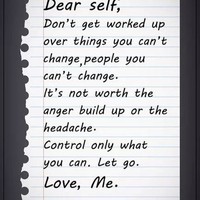 Dear self,
Don't get worked up
over things you can't
change,people you
can't change.
It's not worth the
anger build up or the
headache.
Control only what
you can. Let go.
Love, Me.